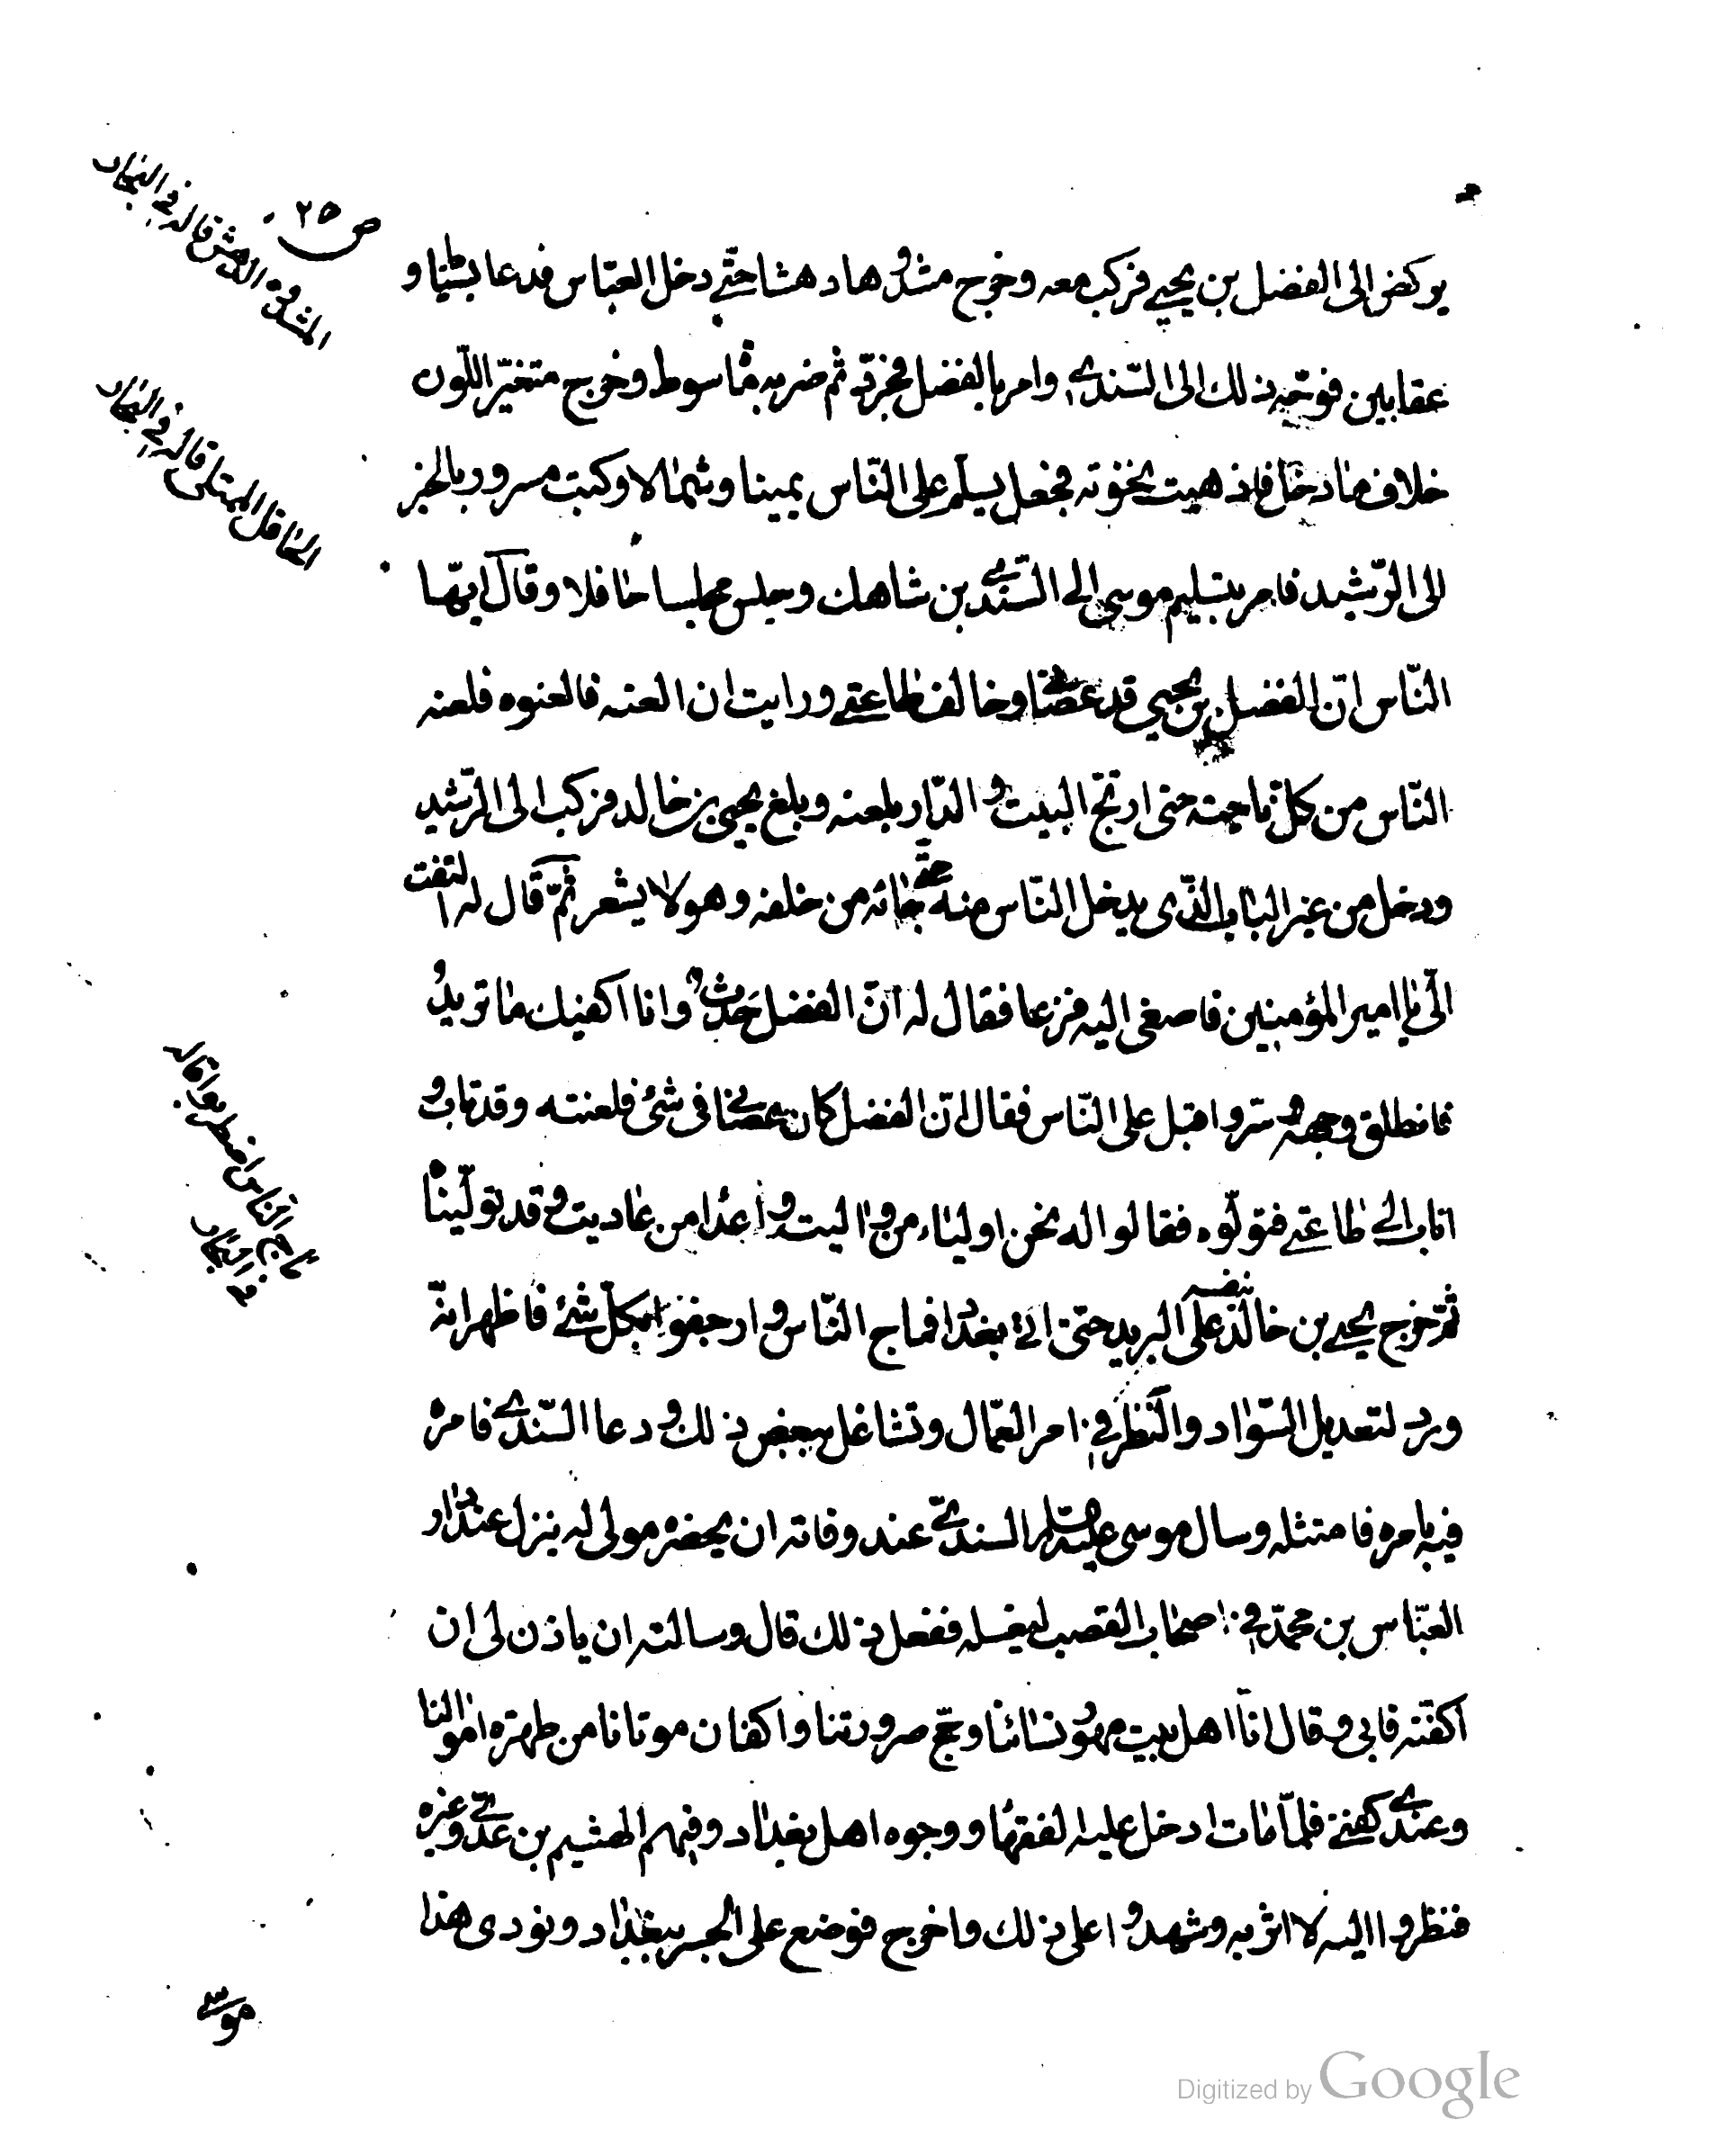 ص ٢٥٠
المشدوق الدهش قاله في النهاية
الحافل الممتلئ قاله في النهاية
يركض الى الفضل بن يحيى فركب معه وخرج مشدوها دهشا حتى دخل العباس فدعا بسياط و
عقابين فوجّه ذلك الى السّندي وامر بالفضل فجرّد ثم ضربه مائة سوط وخرج متغيّر اللّون
خلاف ما دخل فاذهبت نخوته فجعل يسلّم على النّاس يمينا وشمالا وكتب مسرور بالخبر
الى الرّشيد فامر بتسليم موسى الى السّندي بن شاهك وجلس مجلسا حافلا وقال ايّها
النّاس انّ الفضل بن يحيى قد عصاني وخالف طاعتي ورايت ان العنه فالعنوه فلعنه
النّاس من كلّ ناحية حتى ارتجّ البيت والدّار بلعنه وبلغ يحيى بن خالد فركب الى الرّشيد
ودخل من غير الباب الّذى يدخل النّاس منه حتّى جائه من خلفه وهو لا يشعر ثمّ قال له التفت
الّى يا امير المؤمنين فاصغى اليه فزعا فقال له انّ الفضل حَدَث وانا اكفيك ما تريد
فانطلق وجهه وسرّ واقبل على النّاس فقال انّ الفضل كان عصاني فى شئ فلعنته وقد تاب و
اناب الى طاعتي فتولّوه فقالوا له نحن اولياء من واليت واعداء من عاديت وقد تولّيناه
ثمّ خرج يحيى بن خالد بنفسه على البريد حتى اتى بغداد فماج النّاس وارجفوا بكلّ شئ فاظهر انّه
ورد لتعديل السّواد والنّظر في امر العمّال وتشاغل ببعض ذلك ودعا السّندي فامره
فيه بامره فامتثله وسال موسى عليه السلم السندي عند وفاته ان يحضره مولى له ينزل عند دار
العبّاس بن محمّد في اصحاب القصب ليغسله ففعل ذلك قال وسالته ان ياذن لى ان
اكفّنه فابى وقال انّا اهل بيت مهور نسائنا وحجّ صرورتنا واكفان موتانا من طهرة اموالنا
وعندي كفني فلمّا مات ادخل عليه الفقهاء ووجوه اهل بغداد وفيهم الهيثم بن عدي وغيره
فنظروا اليه لا اثر به وشهدوا على ذلك واخرج فوضع على الجسر ببغداد ونودى هذا
موسى
Digitized by Google